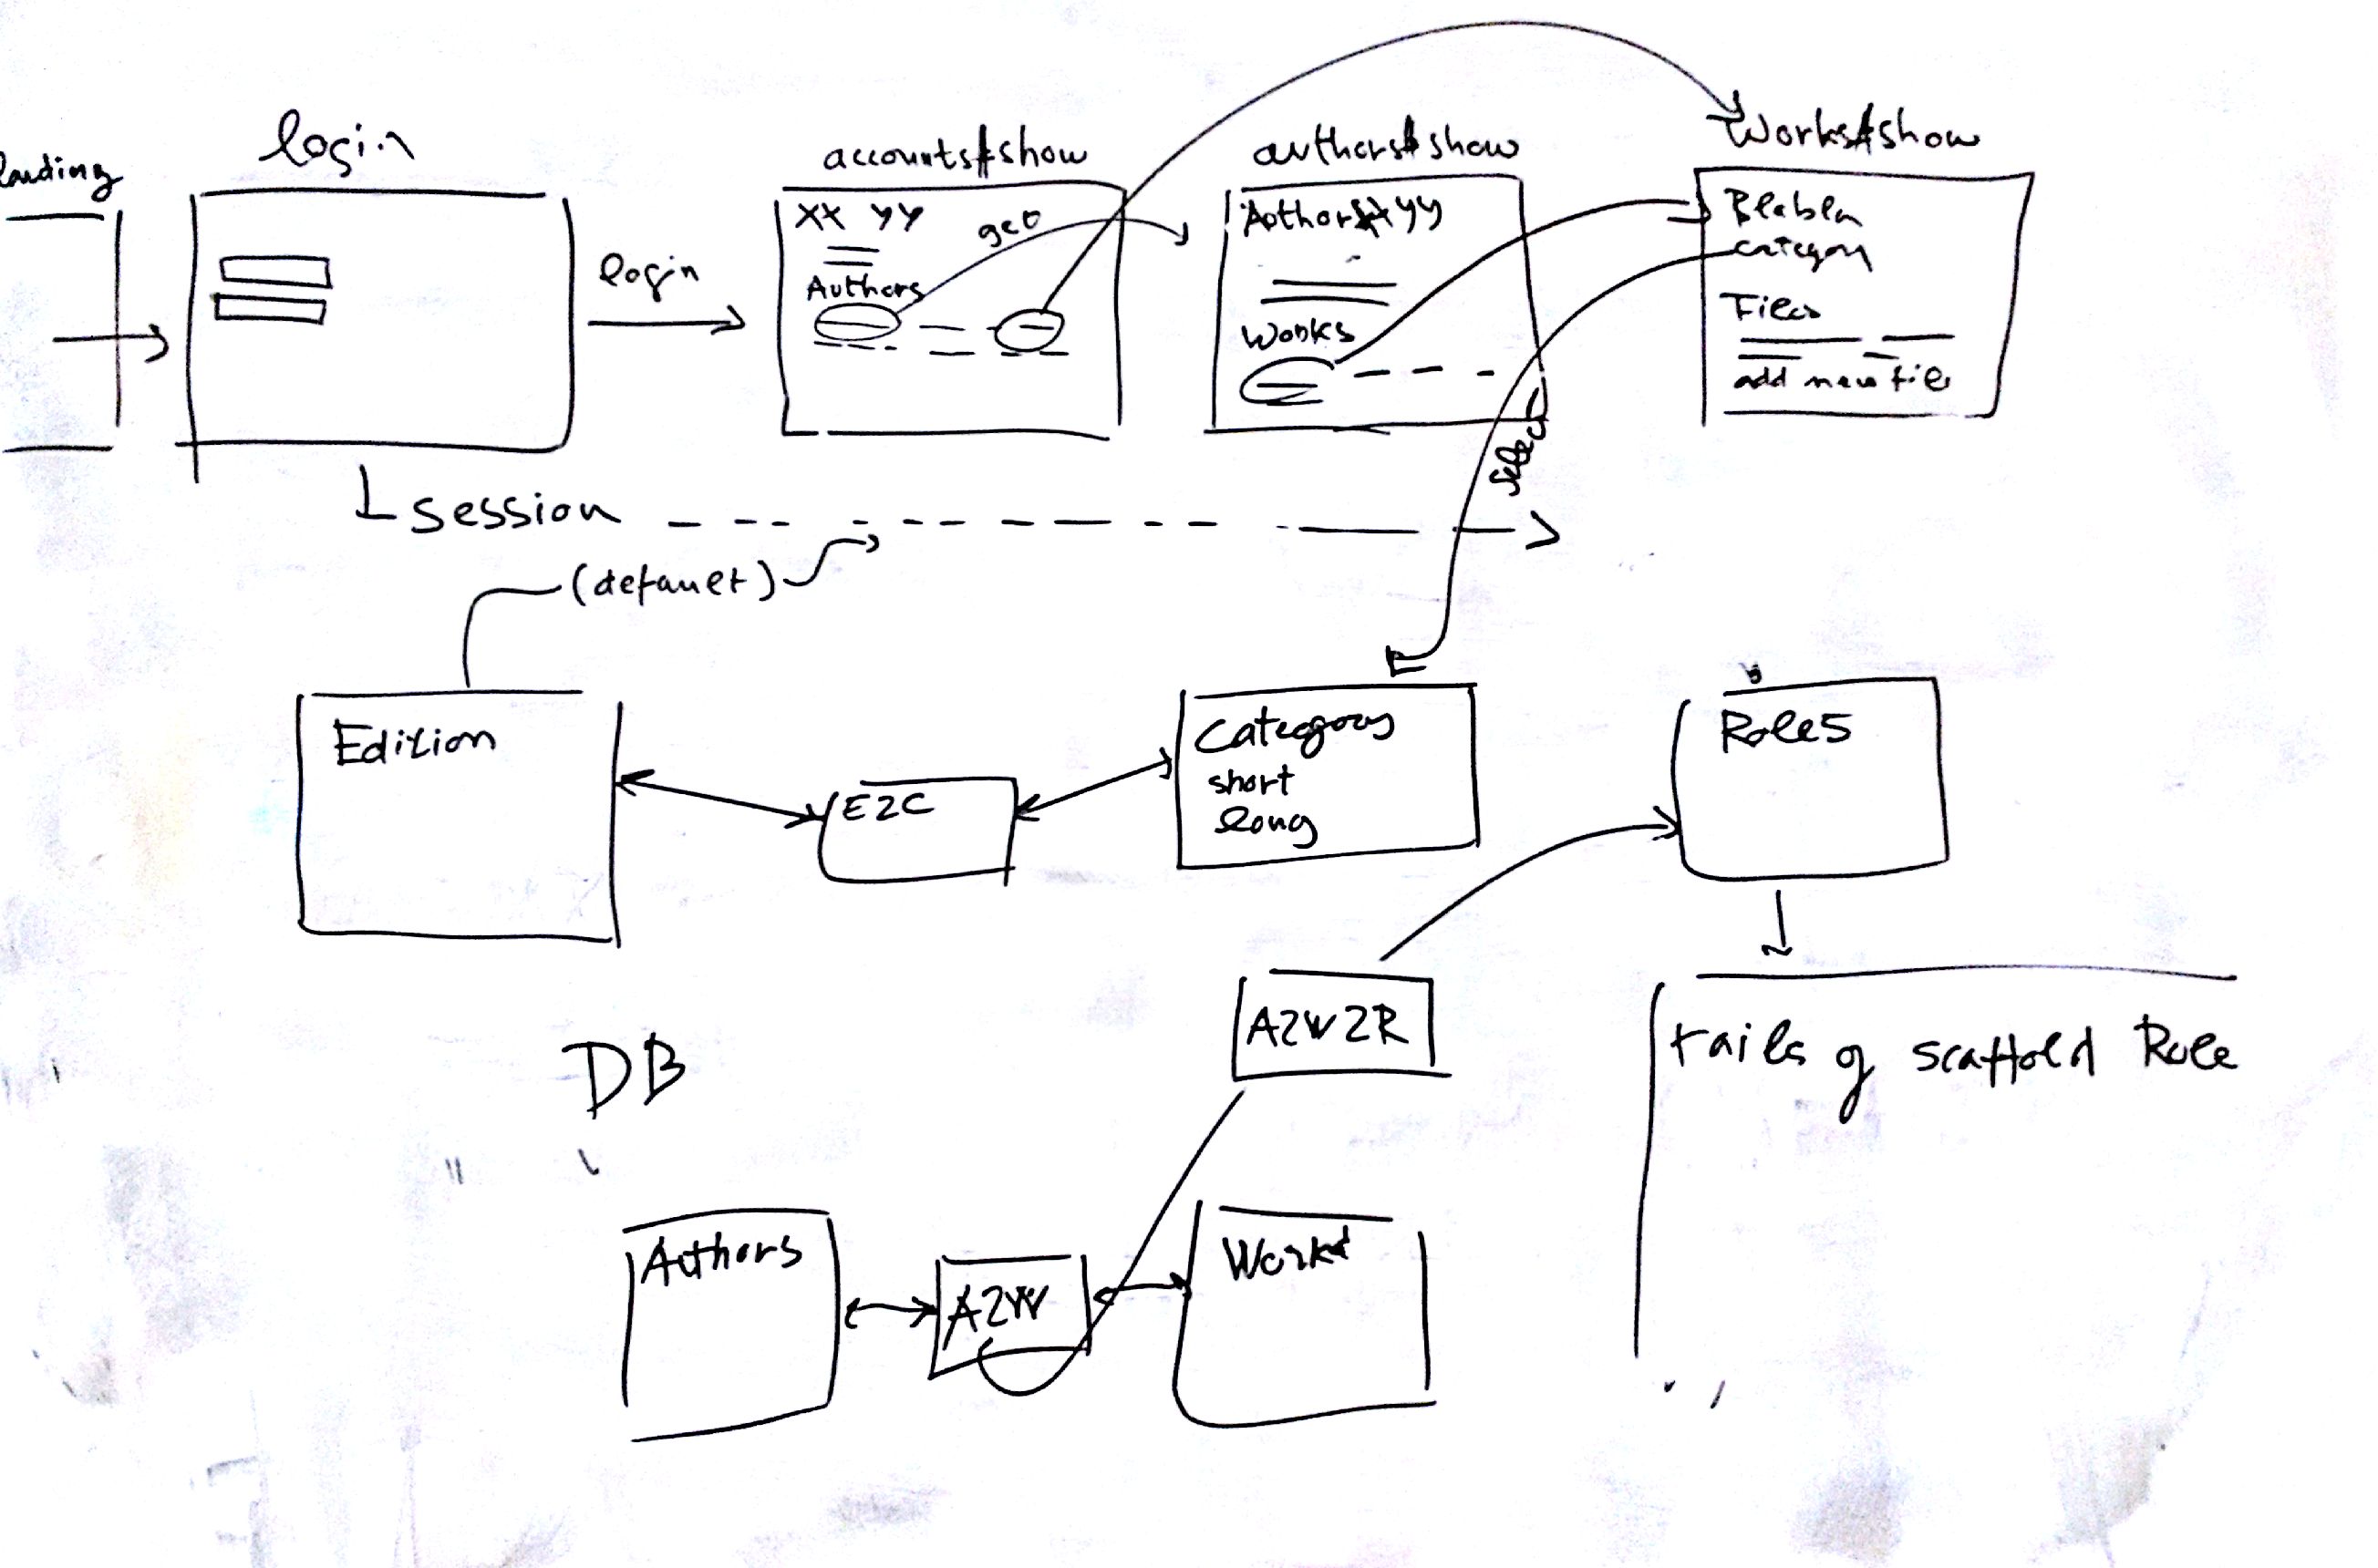 landing
login
login
accounts#show
XX YY
Authors
geo
authors#show
Author XX YY
Works
Works#show
Blabla
category
Files
add new file
select
session
(default)
Edition
E2C
Category
short
long
Roles
A2W2R
rails g scaffold Role
DB
Authors
A2W
Works